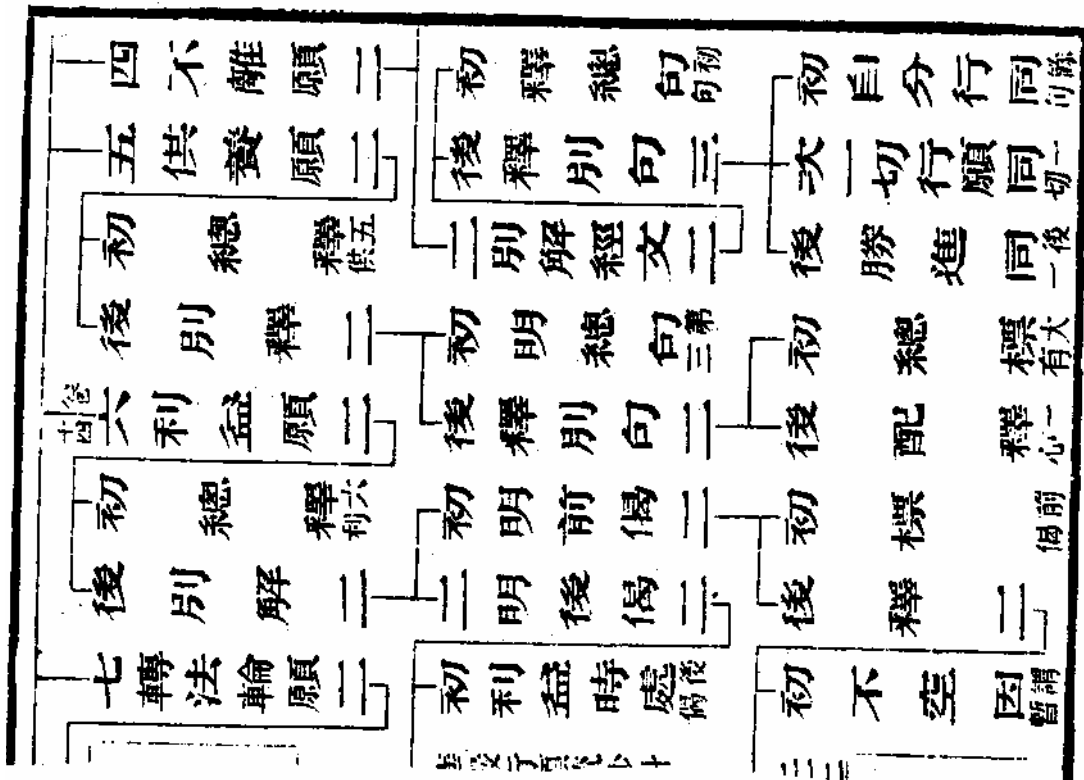 四不離願二
五供養願二
初總釋五供
後別釋二
卷十四
六利益願二
初總釋六利
後別解二
七轉法輪願二
初釋總句初句
後釋別句三
二別解經文二
初明總句第三
後釋別句二
初明前偈二
二明後偈二
初利益時處後偈
初自分行同餘句
次一切行願同一切
後勝進同後一
初總標大有
後配釋一心
初標前偈
後釋二
初不空因暫謂